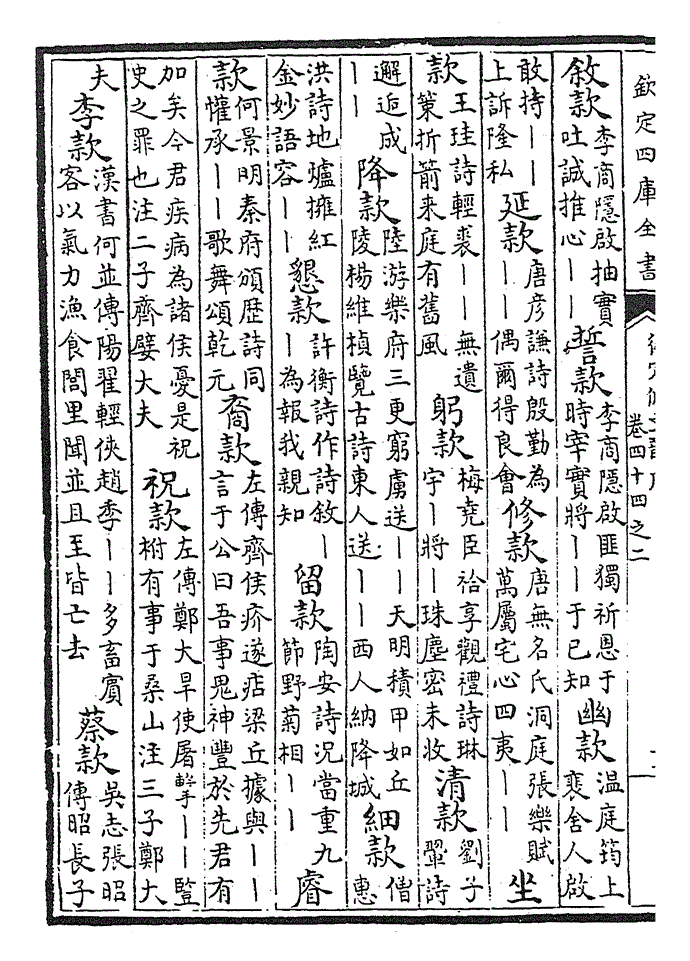 欽定四庫全書
卷四十四之二
敘款李商隱啟抽實吐誠推心——誓款李商隱啟匪獨祈恩于時宰實將——于已知幽款溫庭筠上裴舍人啟
敢持——上訴隆私延款唐彦謙詩殷勤為——偶爾得良會修款唐無名氏洞庭張樂賦萬屬宅心四夷——坐
款王珪詩輕裘——無遺䇿折箭来庭有舊風躬款梅堯臣祫享觀禮詩琳宇—將—珠塵密未收清款劉子翬詩
邂逅成——降款陸游樂府三更窮虜送——天明積甲如丘陵楊維楨覽古詩東人送——西人納降城細款僧惠
洪詩地爐擁紅金妙語容——懇款許衡詩作詩敘——為報我親知留款陶安詩況當重九節野菊相——睿
款何景明秦府頌歴詩同懽承——歌舞頌乾元裔款左傳齊侯疥遂痁梁丘據與——言于公曰吾事鬼神豐於先君有
加矣今君疾病為諸侯憂是祝史之罪也注二子齊嬖大夫祝款左傳鄭大旱使屠擊——豎柎有事于桑山注三子鄭大
夫李款漢書何並傳陽翟輕俠趙季——多畜賓客以氣力漁食閭里聞並且至皆亡去蔡款吳志張昭傳昭長子